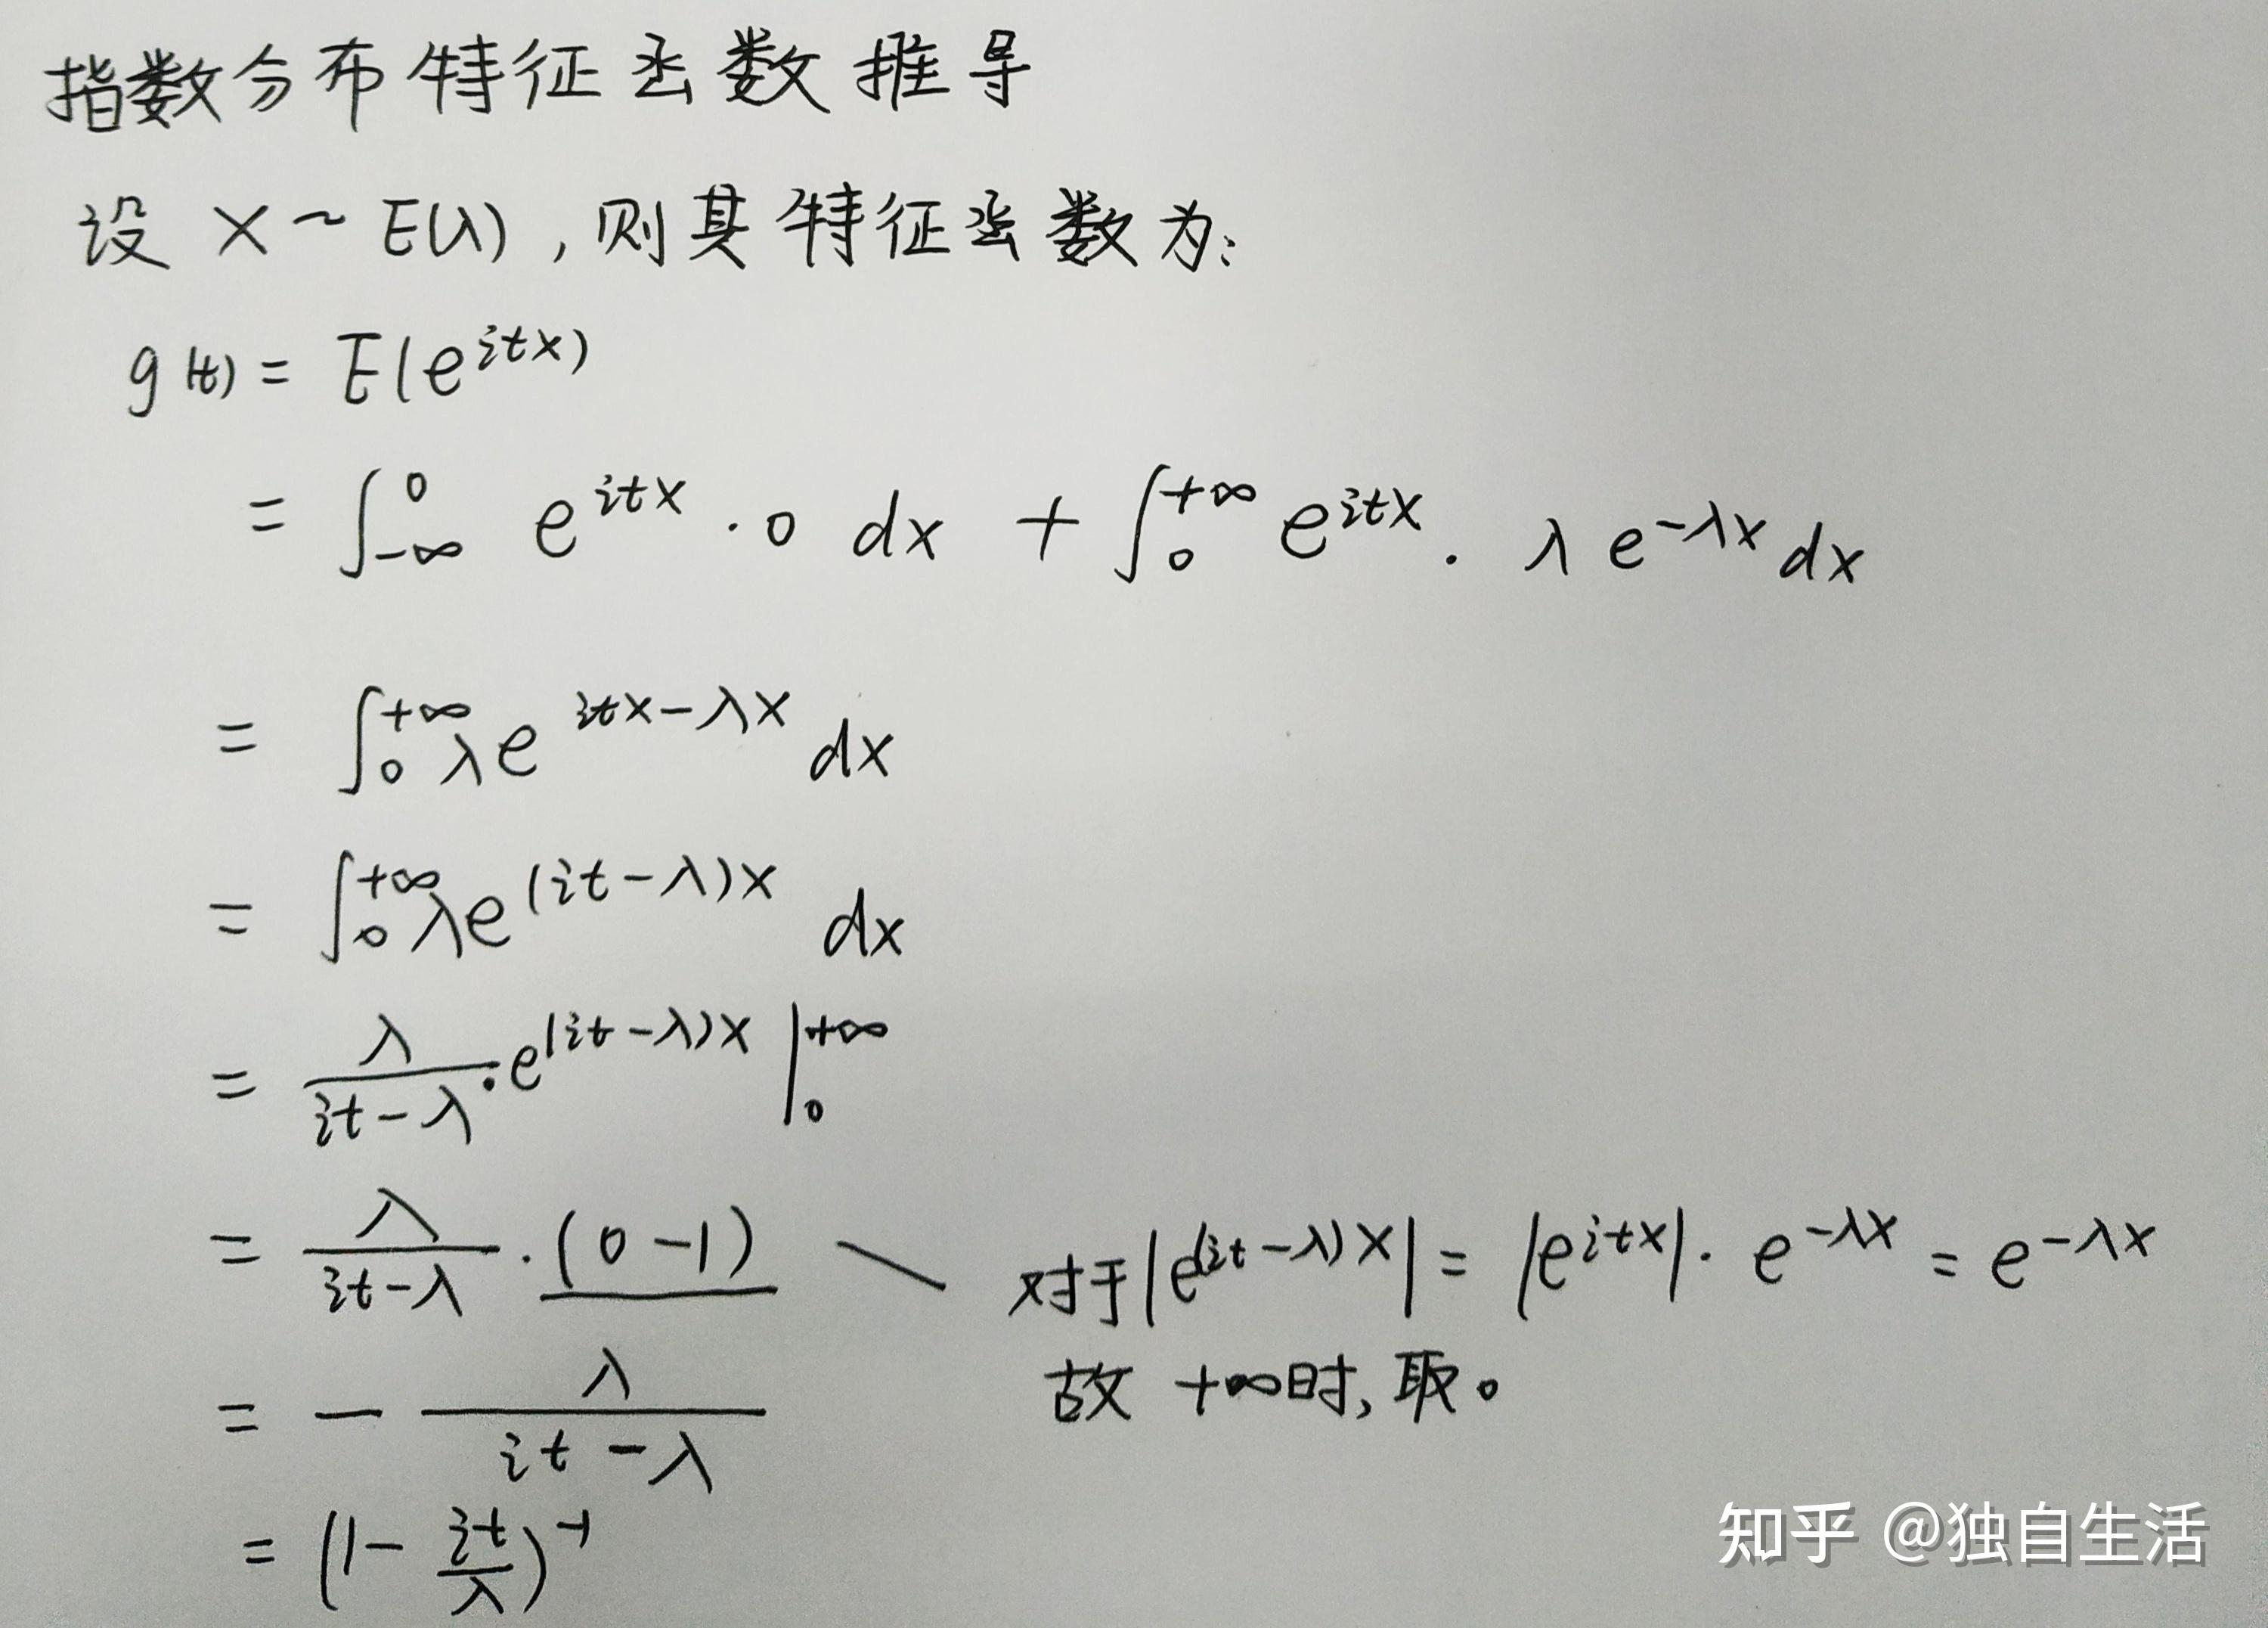 指数分布特征函数推导
设 X ~ E(λ) , 则其特征函数为:
g(t) = E(e^{itx})
= ∫_{-∞}^{0} e^{itx} · 0 dx + ∫_{0}^{+∞} e^{itx} · λ e^{-λx} dx
= ∫_{0}^{+∞} λe^{itx-λx} dx
= ∫_{0}^{+∞} λe^{(it-λ)x} dx
= \frac{λ}{it-λ} · e^{(it-λ)x} |_{0}^{+∞}
= \frac{λ}{it-λ} · (0-1) \ 对于|e^{(it-λ)x}| = |e^{itx}| · e^{-λx} = e^{-λx}
故 +∞时, 取0
= - \frac{λ}{it-λ}
= (1- \frac{it}{λ})^{-1}
知乎 @独自生活